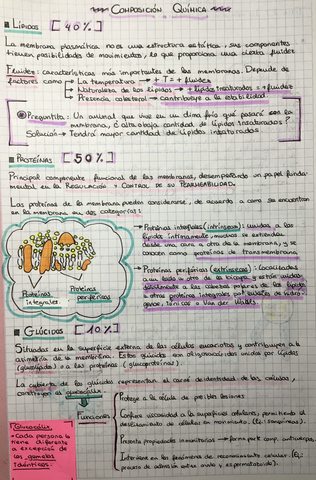 COMPOSICIÓN QUÍMICA
LÍPIDOS [40%]
La membrana plasmática no es una estructura estática, sus componentes
tienen posibilidades de movimientos, lo que proporciona una cierta fluidez.
Fluidez: características más importantes de las membranas. Depende de
factores como → La temperatura → + T = + fluidez
→ Naturaleza de los lípidos → + lípidos insaturados = + fluidez
→ Presencia colesterol → contribuye a la estabilidad.
Preguntita: Un animal que vive en un día frío qué pasará con su
membrana, ¿ alta o baja cantidad de lípidos insaturados?
Solución → Tendrá mayor cantidad de lípidos insaturados.
PROTEÍNAS [50%]
Principal componente funcional de las membranas, desempeñando un papel funda-
mental en la REGULACIÓN Y CONTROL DE SU PERMEABILIDAD.
Las proteínas de la membrana pueden considerarse, de acuerdo a como se encuentran
en la membrana en dos categorías:
→ Proteínas integrales (intrínsecas): unidas a los
lípidos íntimamente, muchas se extienden
desde una cara a otra de la membrana, y se
conocen como proteínas de transmembrana.
→ Proteínas periféricas (extrínsecas): Localizadas
a un lado u otro de la bicapa y están unidas
débilmente a las cabezas polares de los lípidos
u otras proteínas integrales por enlaces de hidró-
geno, iónicos o Van der Walls.
Proteínas
integrales
Proteínas
periféricas
GLÚCIDOS [10%]
Situadas en la superficie externa de las células eucariotas y contribuyen a la
asimetría de la membrana. Estos glúcidos son oligosacáridos unidos por lípidos
(glucolípidos) o a las proteínas (glucoproteínas).
La cubierta de los glúcidos representan el carné de identidad de las células,
constituyen la glucocálix.
Funciones
Protege a la célula de posibles lesiones
Confiere viscosidad a la superficies celulares, permitiendo el
deslizamiento de células en movimiento. (Ej.: sanguíneas).
Presenta propiedades inmunitarias → forma parte comp. antígenos.
Interviene en los fenómenos de reconocimiento celular. (Ej.:
proceso de adhesión entre óvulo y espermatozoide).
Glucocálix
• Cada persona lo
tiene diferente
a excepción de
los gemelos
idénticos.